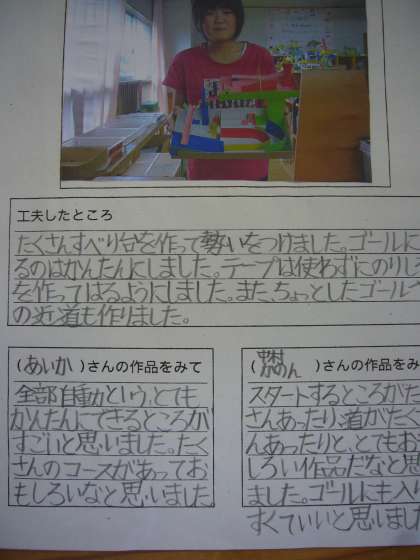 工夫したところ
たくさんすべり台を作って勢いをつけました。ゴールに
るのはかんたんにしました。テープは使わずにのりし
を作ってはるようにしました。また、ちょっとしたゴールへ
の近道も作りました。
(あいか)さんの作品をみて
全部自動という、とても
かんたんにできるところが
すごいと思いました。たく
さんのコースがあってお
もしろいなと思いました。
( )さんの作品をみて
スタートするところがた
さんあったり、道がたく
んあったりと、とてもお
しろい作品だなと思
ました。ゴールにも入り
すくていいと思いまし